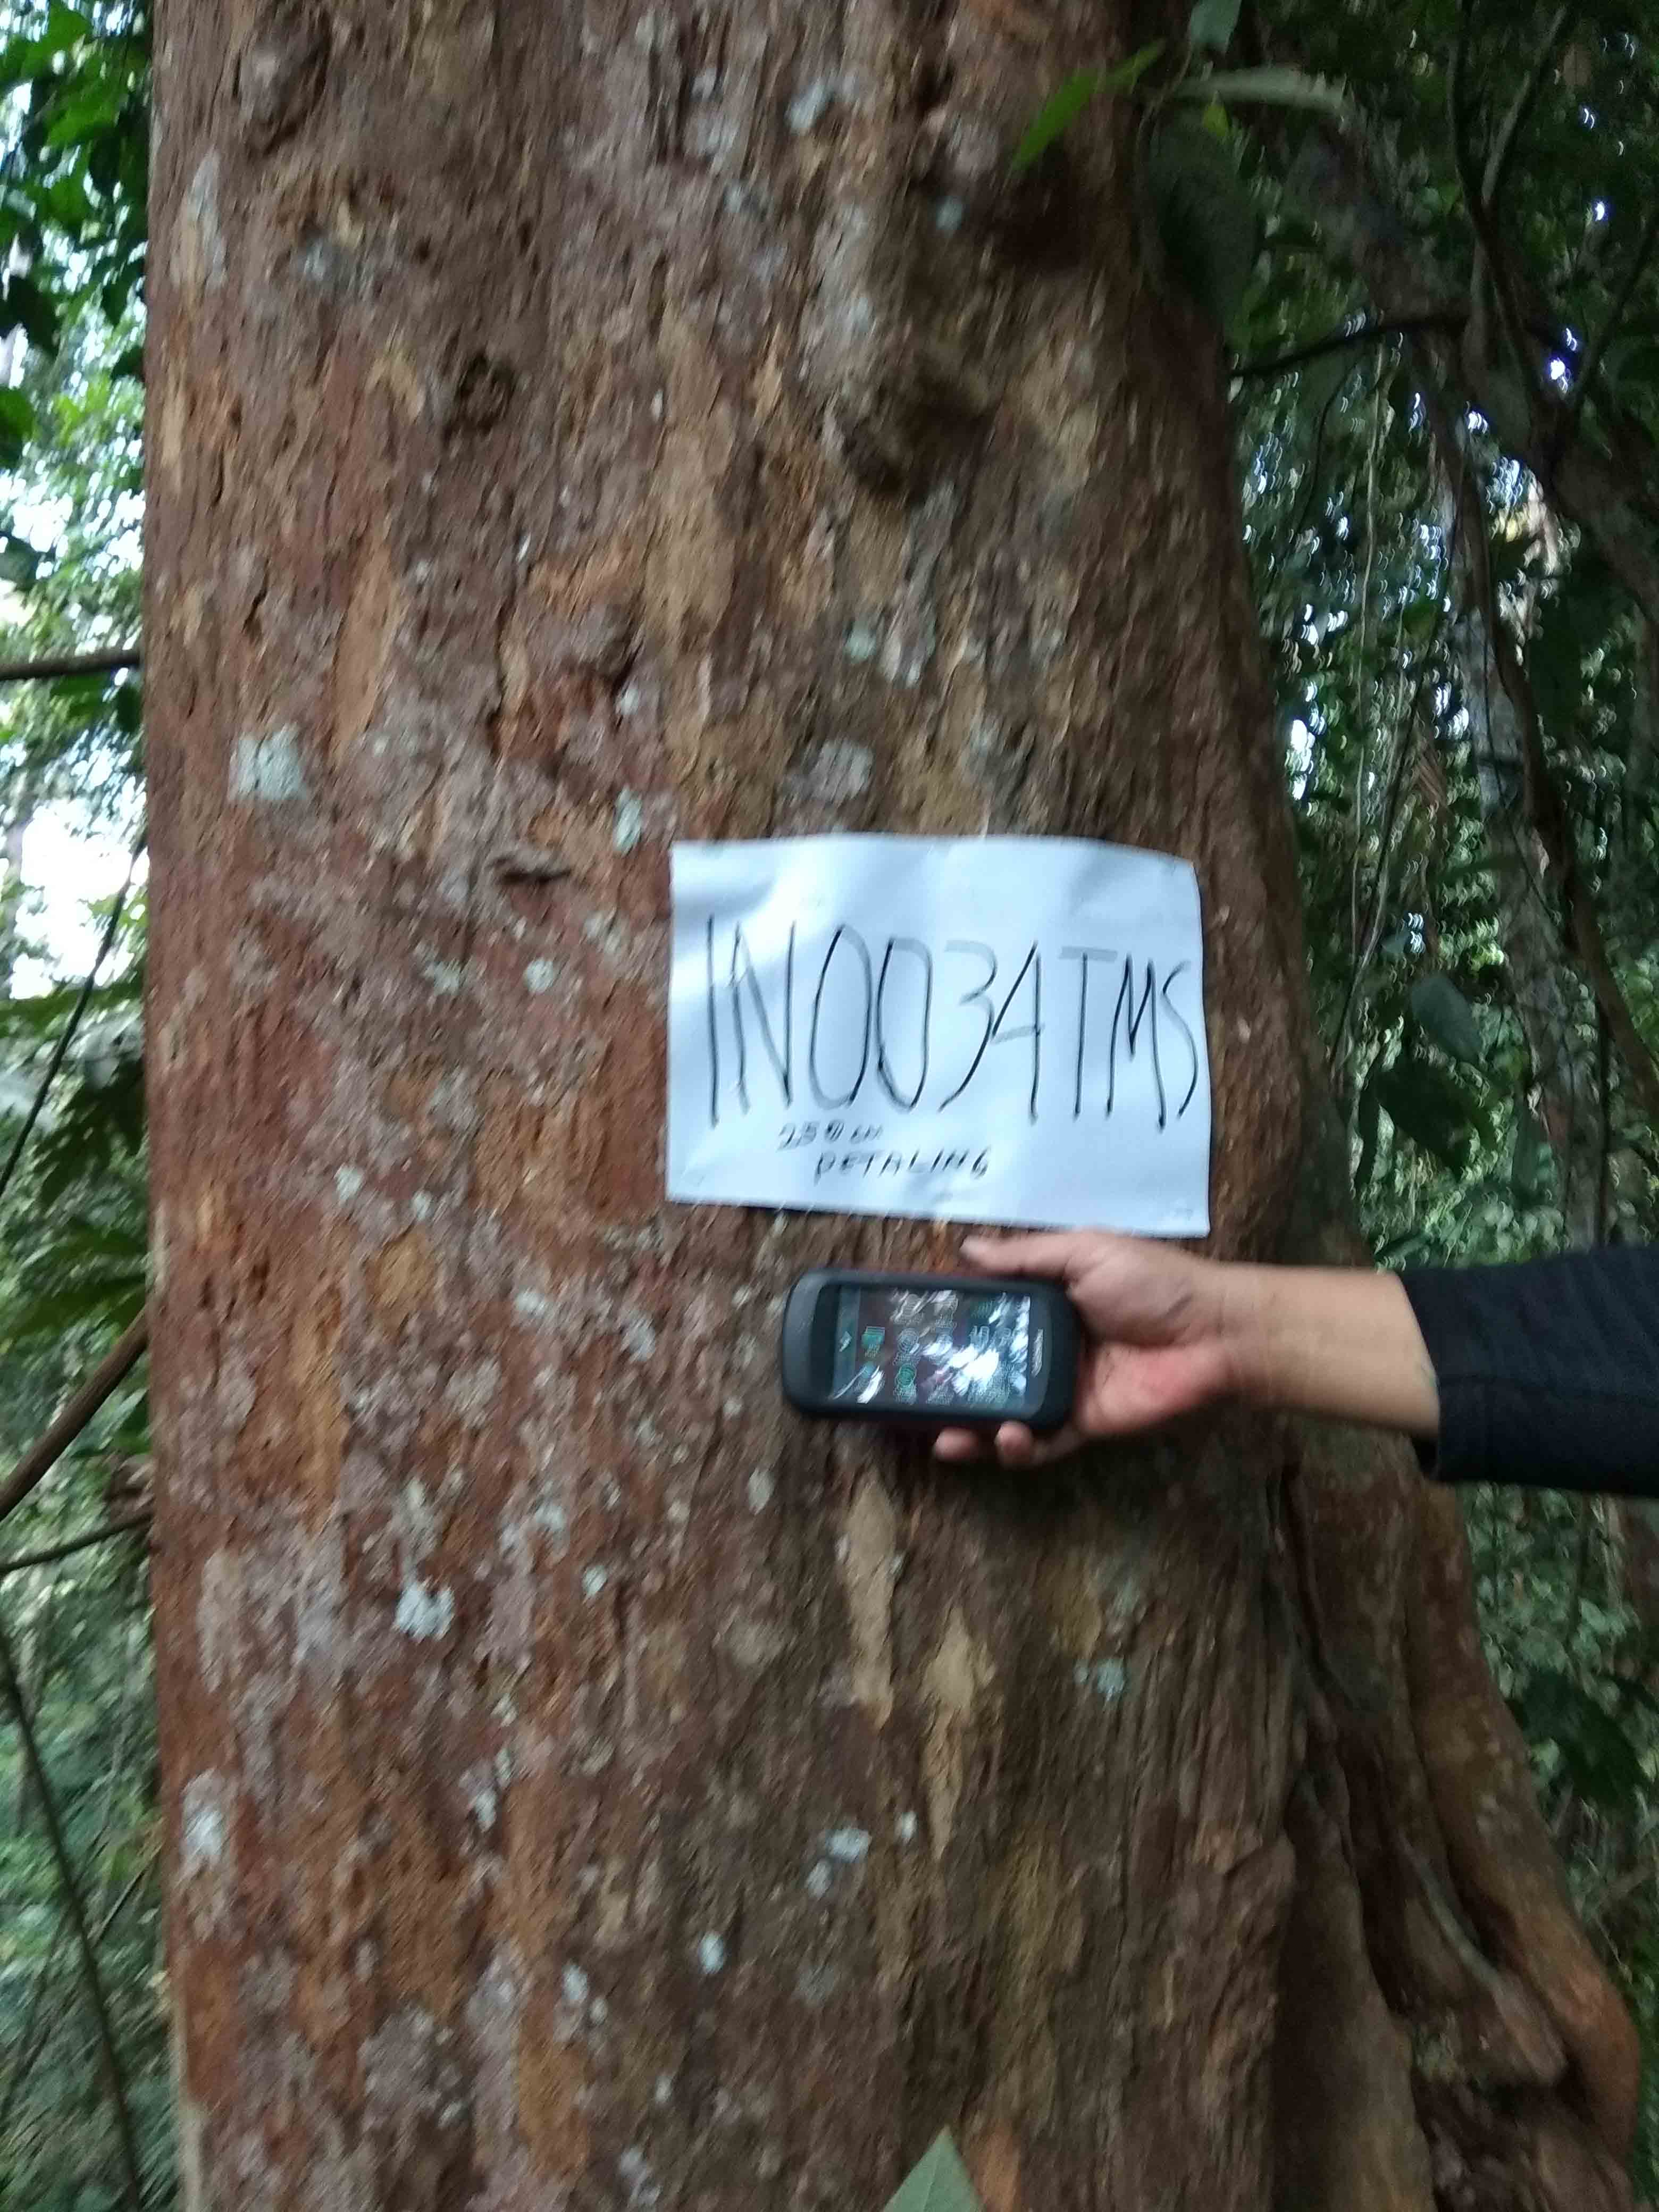 IN003ATMS
250 cm
PETALING